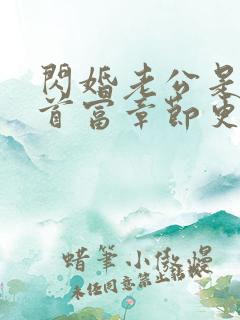 閃婚老公是
首富章節更
蜡筆小傲慢
未经同意禁止转载